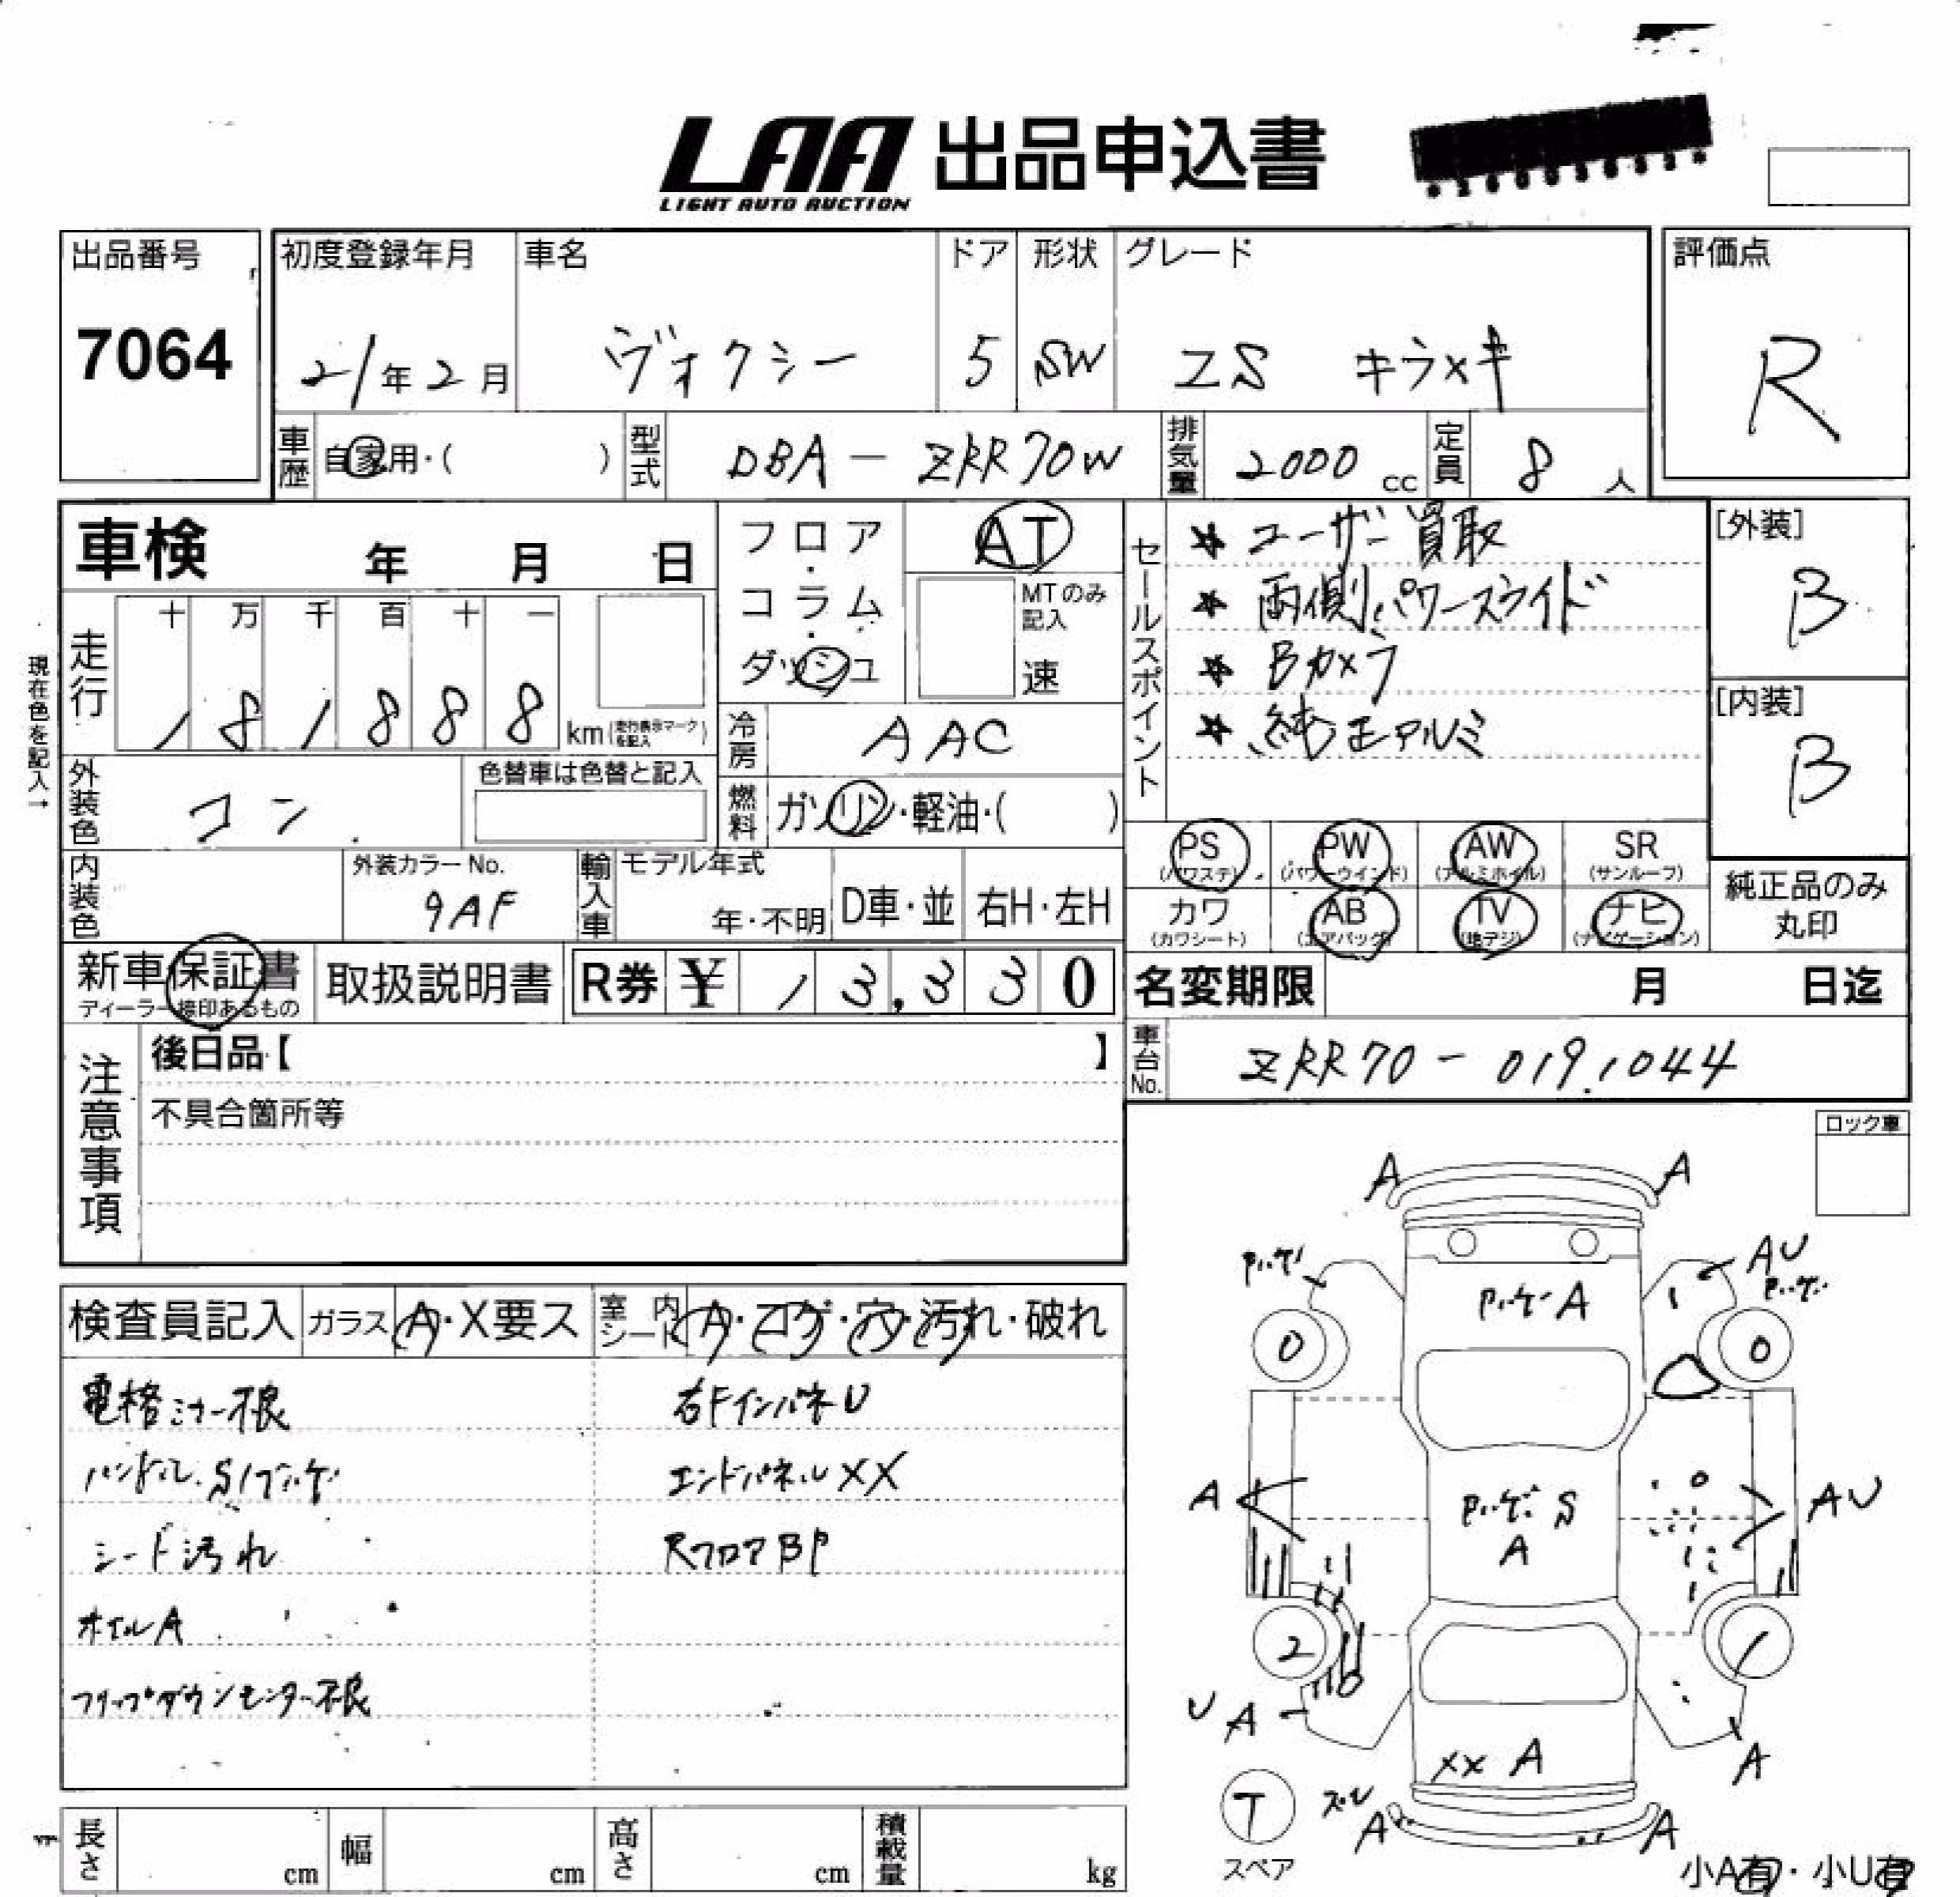 LAA 出品申込書
LIGHT AUTO AUCTION
出品番号
7064
初度登録年月
21年2月
車名
ヴォクシー
ドア
5
形状
SW
グレード
ZS キラメキ
評価点
R
車歴 自家用・( )
型式 DBA-ZRR70W
排気量 2000 cc
定員 8 人
車検 年 月 日
現在色を記入→
走行 十 万 千 百 十 一
1 8 1 8 8 8 km (走行表示マークを記入)
フロア・コラム・ダッシュ
AT
MTのみ記入
速
冷房 AAC
外装色 コン
色替車は色替と記入
燃料 ガソリン・軽油・( )
内装色
外装カラーNo.
9AF
輸入車 モデル年式
年・不明
D車・並 右H・左H
セールスポイント
★ ユーザー買取
★ 両側パワースライド
★ Bカメラ
★ 純正アルミ
[外装]
B
[内装]
B
PS (パワステ) PW (パワーウインド) AW (アルミホイル) SR (サンルーフ)
カワ (カワシート) AB (エアバッグ) TV (地デジ) ナビ (ナビゲーション)
純正品のみ
丸印
新車保証書
ディーラー捺印あるもの
取扱説明書
R券 ¥ 1 3,3 3 0
名変期限 月 日迄
車台No. ZRR70-0191044
注意事項
後日品【 】
不具合箇所等
ロック車
検査員記入 ガラス A・X要ス
室内シート A・コゲ・穴・汚れ・破れ
電格ミラー不良
ハンドル.S/ブハゲ
シート汚れ
ホイルA
フリップダウンモニター不良
右FインパネU
エンドパネルXX
RフロアBP
A A
AU
A
0 0
A
S
A
A AU
2
U A
XX A
A
T
スペア
ズレ
A A
小A有・小U有
長さ cm 幅 cm 高さ cm 積載量 kg